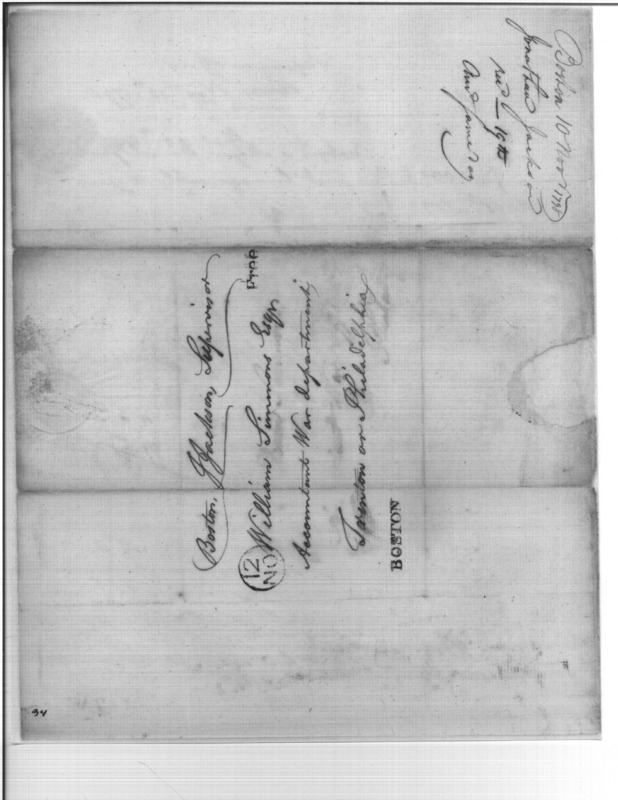 Boston, J Jackson, Supervisor
Free
William Simmons Esqr.
12
NO
Accountant War department,
Trenton or Philadelphia
BOSTON
Boston 10 Novr. 1798
Jonathan Jackson
recd 19th
Ansd same day
94